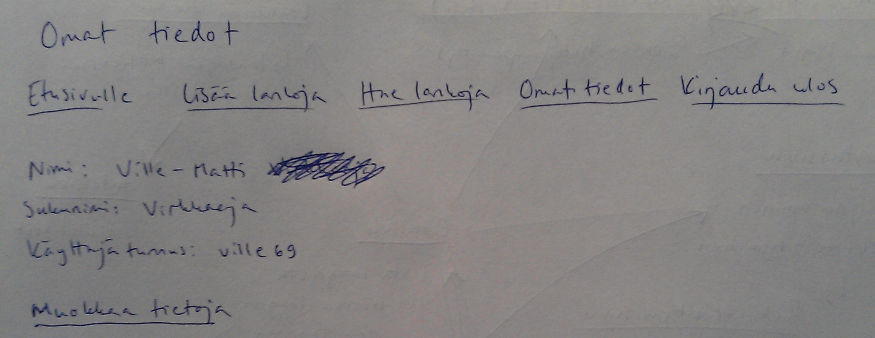 Omat tiedot
Etusivulle Lisää lankoja Hae lankoja Omat tiedot Kirjaudu ulos
Nimi: Ville-Matti
Sukunimi: Virkkaaja
Käyttäjätunnus: ville69
Muokkaa tietoja